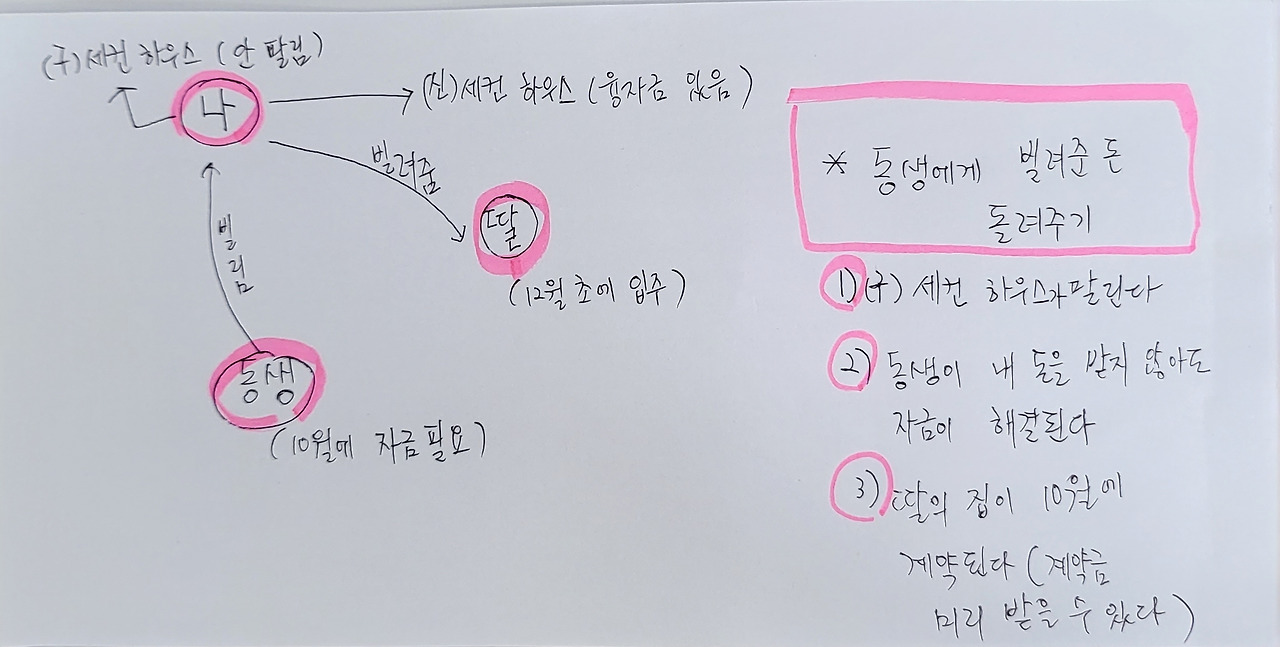 (구)세컨 하우스 (안 팔림)
나
(신)세컨 하우스 (융자금 있음)
빌려줌
딸
(12월 초에 입주)
빌림
동생
(10월에 자금필요)
* 동생에게 빌려준 돈
돌려주기
1) (구) 세컨 하우스가 팔린다
2) 동생이 내 돈을 받지 않아도
자금이 해결된다
3) 딸의 집이 10월에
계약된다 (계약금
미리 받을 수 있다)